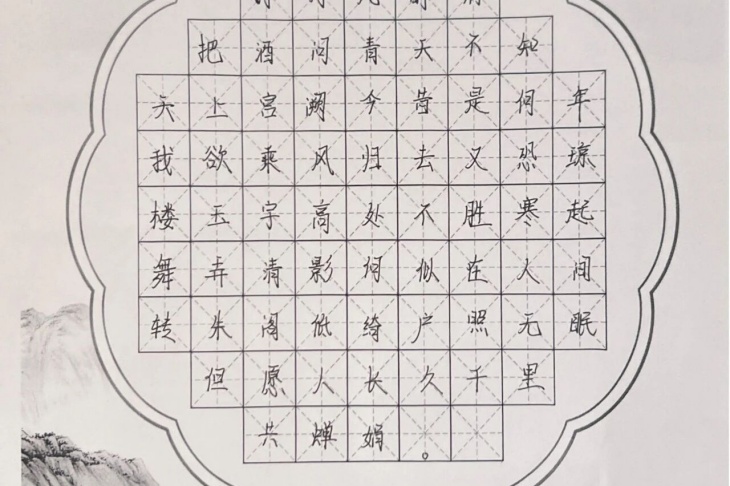 把酒问青天不知
天上宫阙今昔是何年
我欲乘风归去又恐琼
楼玉宇高处不胜寒起
舞弄清影何似在人间
转朱阁低绮户照无眠
但愿人长久千里
共婵娟。